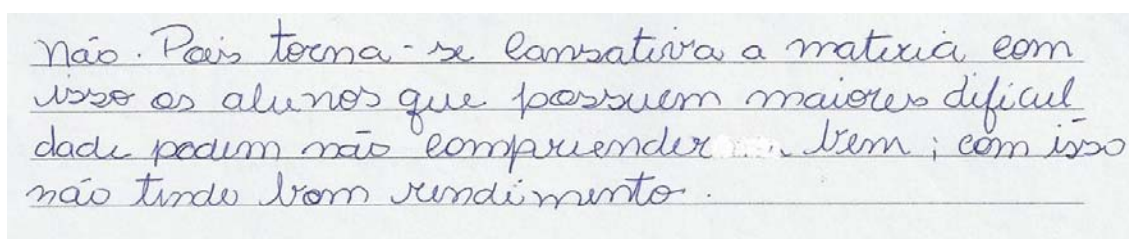 não. Pois torna-se cansativa a materia com
isso os alunos que possuem maiores dificul
dade podem não compreender bem; com isso
não tendo bom rendimento.